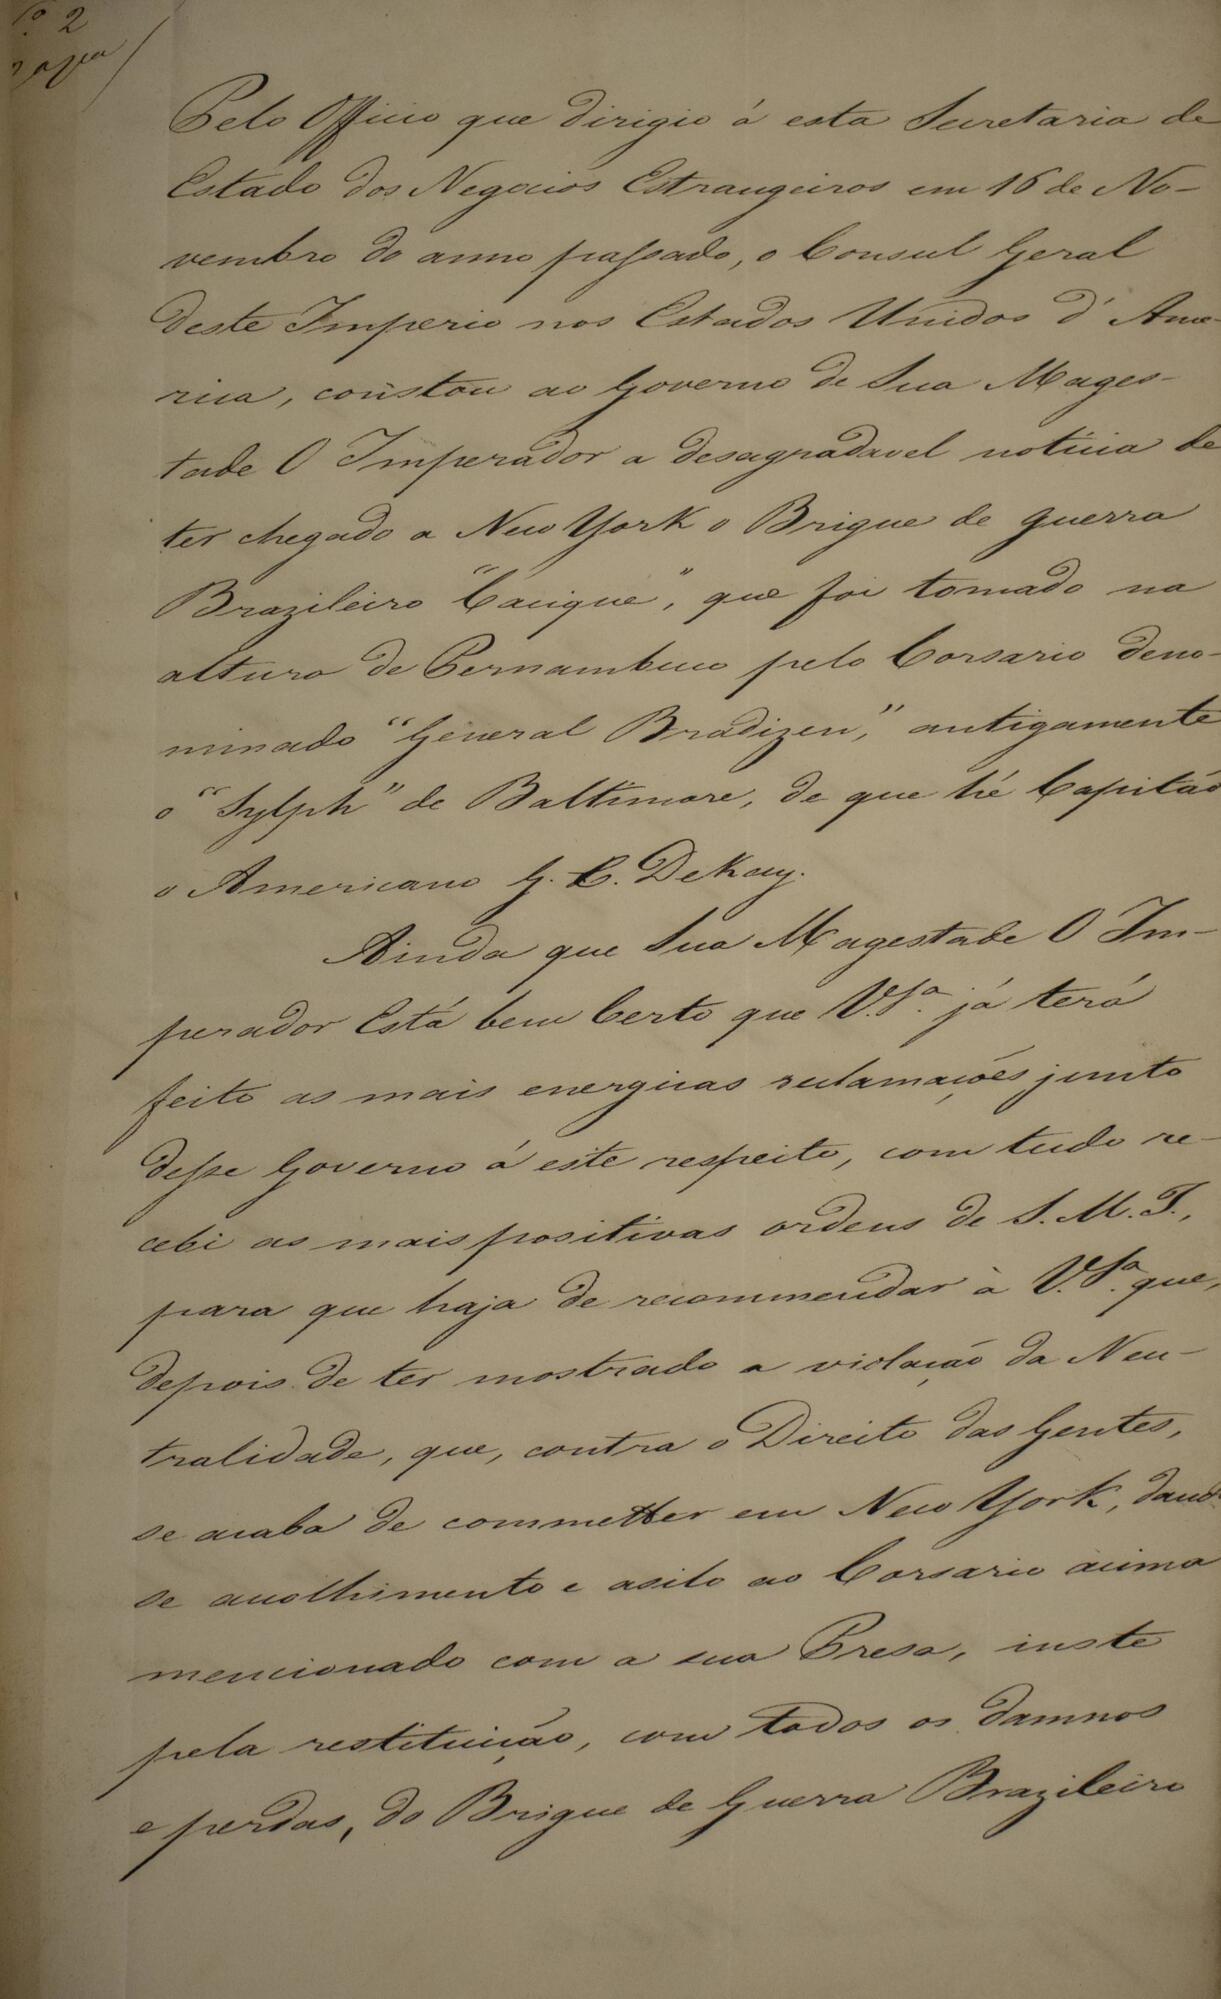 Nº 2
Copia
Pelo Officio que dirigio á esta Secretaria de
Estado dos Negocios Estrangeiros em 16 de No-
vembro do anno passado, o Consul Geral
deste Imperio nos Estados Unidos d'Ame-
rica, constou ao Governo de Sua Mages-
tade O Imperador a desagradavel noticia de
ter chegado a New York o Brigue de guerra
Brazileiro "Cacique", que foi tomado na
altura de Pernambuco pelo Corsario deno-
minado "General Bradizen," antigamente
o "Sylph" de Baltimore, de que hé Capitão
o Americano G. C. DeKay.
Ainda que Sua Magestade O Im-
perador Está bem Certo que V.Sª. já terá
feito as mais energicas reclamações junto
desse Governo á este respeito, com tudo re-
cebi as mais positivas ordens de S. M. I.,
para que haja de recommendar à V.Sª. que,
depois de ter mostrado a violação da Neu-
tralidade, que, contra o Direito das Gentes,
se acaba de commetter em New York, dando
se acolhimento e asilo ao Corsario acima
mencionado com a sua Presa, inste
pela restituição, com todos os damnos
e perdas, do Brigue de Guerra Brazileiro